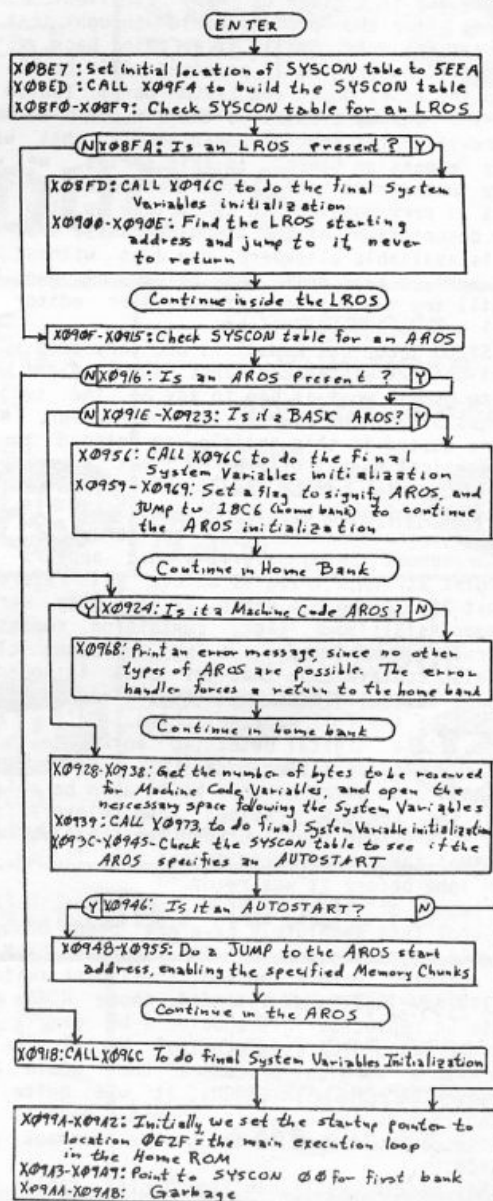 ENTER
XØ8E7: Set initial location of SYSCON table to 5EEA
XØ8ED: CALL XØ9F4 to build the SYSCON table
XØ8FØ-XØ8F9: Check SYSCON table for an LROS
N XØ8FA: Is an LROS present? Y
XØ8FD: CALL XØ96C to do the final System
Variables initialization
XØ9ØØ-XØ9ØE: Find the LROS starting
address and jump to it never
to return
Continue inside the LROS
XØ9ØF-XØ915: Check SYSCON table for an AROS
N XØ916: Is an AROS Present ? Y
N XØ91E-XØ923: Is it a BASIC AROS? Y
XØ956: CALL XØ96C to do the final
System Variables initialization
XØ959-XØ969: Set a flag to signify AROS, and
JUMP to 18C6 (home bank) to continue
the AROS initialization
Continue in Home Bank
Y XØ924: Is it a Machine Code AROS? N
XØ968: Print an error message, since no other
types of AROS are possible. The error
handler forces a return to the home bank
Continue in home bank
XØ928-XØ938: Get the number of bytes to be reserved
for Machine Code Variables, and open the
nescessary space following the System Variables
XØ939: CALL XØ973, to do final System Variable initialization
XØ93C-XØ945-Check the SYSCON table to see if the
AROS specifies an AUTOSTART
Y XØ946: Is it an AUTOSTART? N
XØ948-XØ955: Do a JUMP to the AROS start
address, enabling the specified Memory Chunks
Continue in the AROS
XØ918: CALL XØ96C To do final System Variables Initialization
XØ99A-XØ9A2: Initially we set the startup pointer to
location ØE2F = the main execution loop
in the Home ROM
XØ9A3-XØ9A9: Point to SYSCON ØØ for first bank
XØ9AA-XØ9AB: Garbage